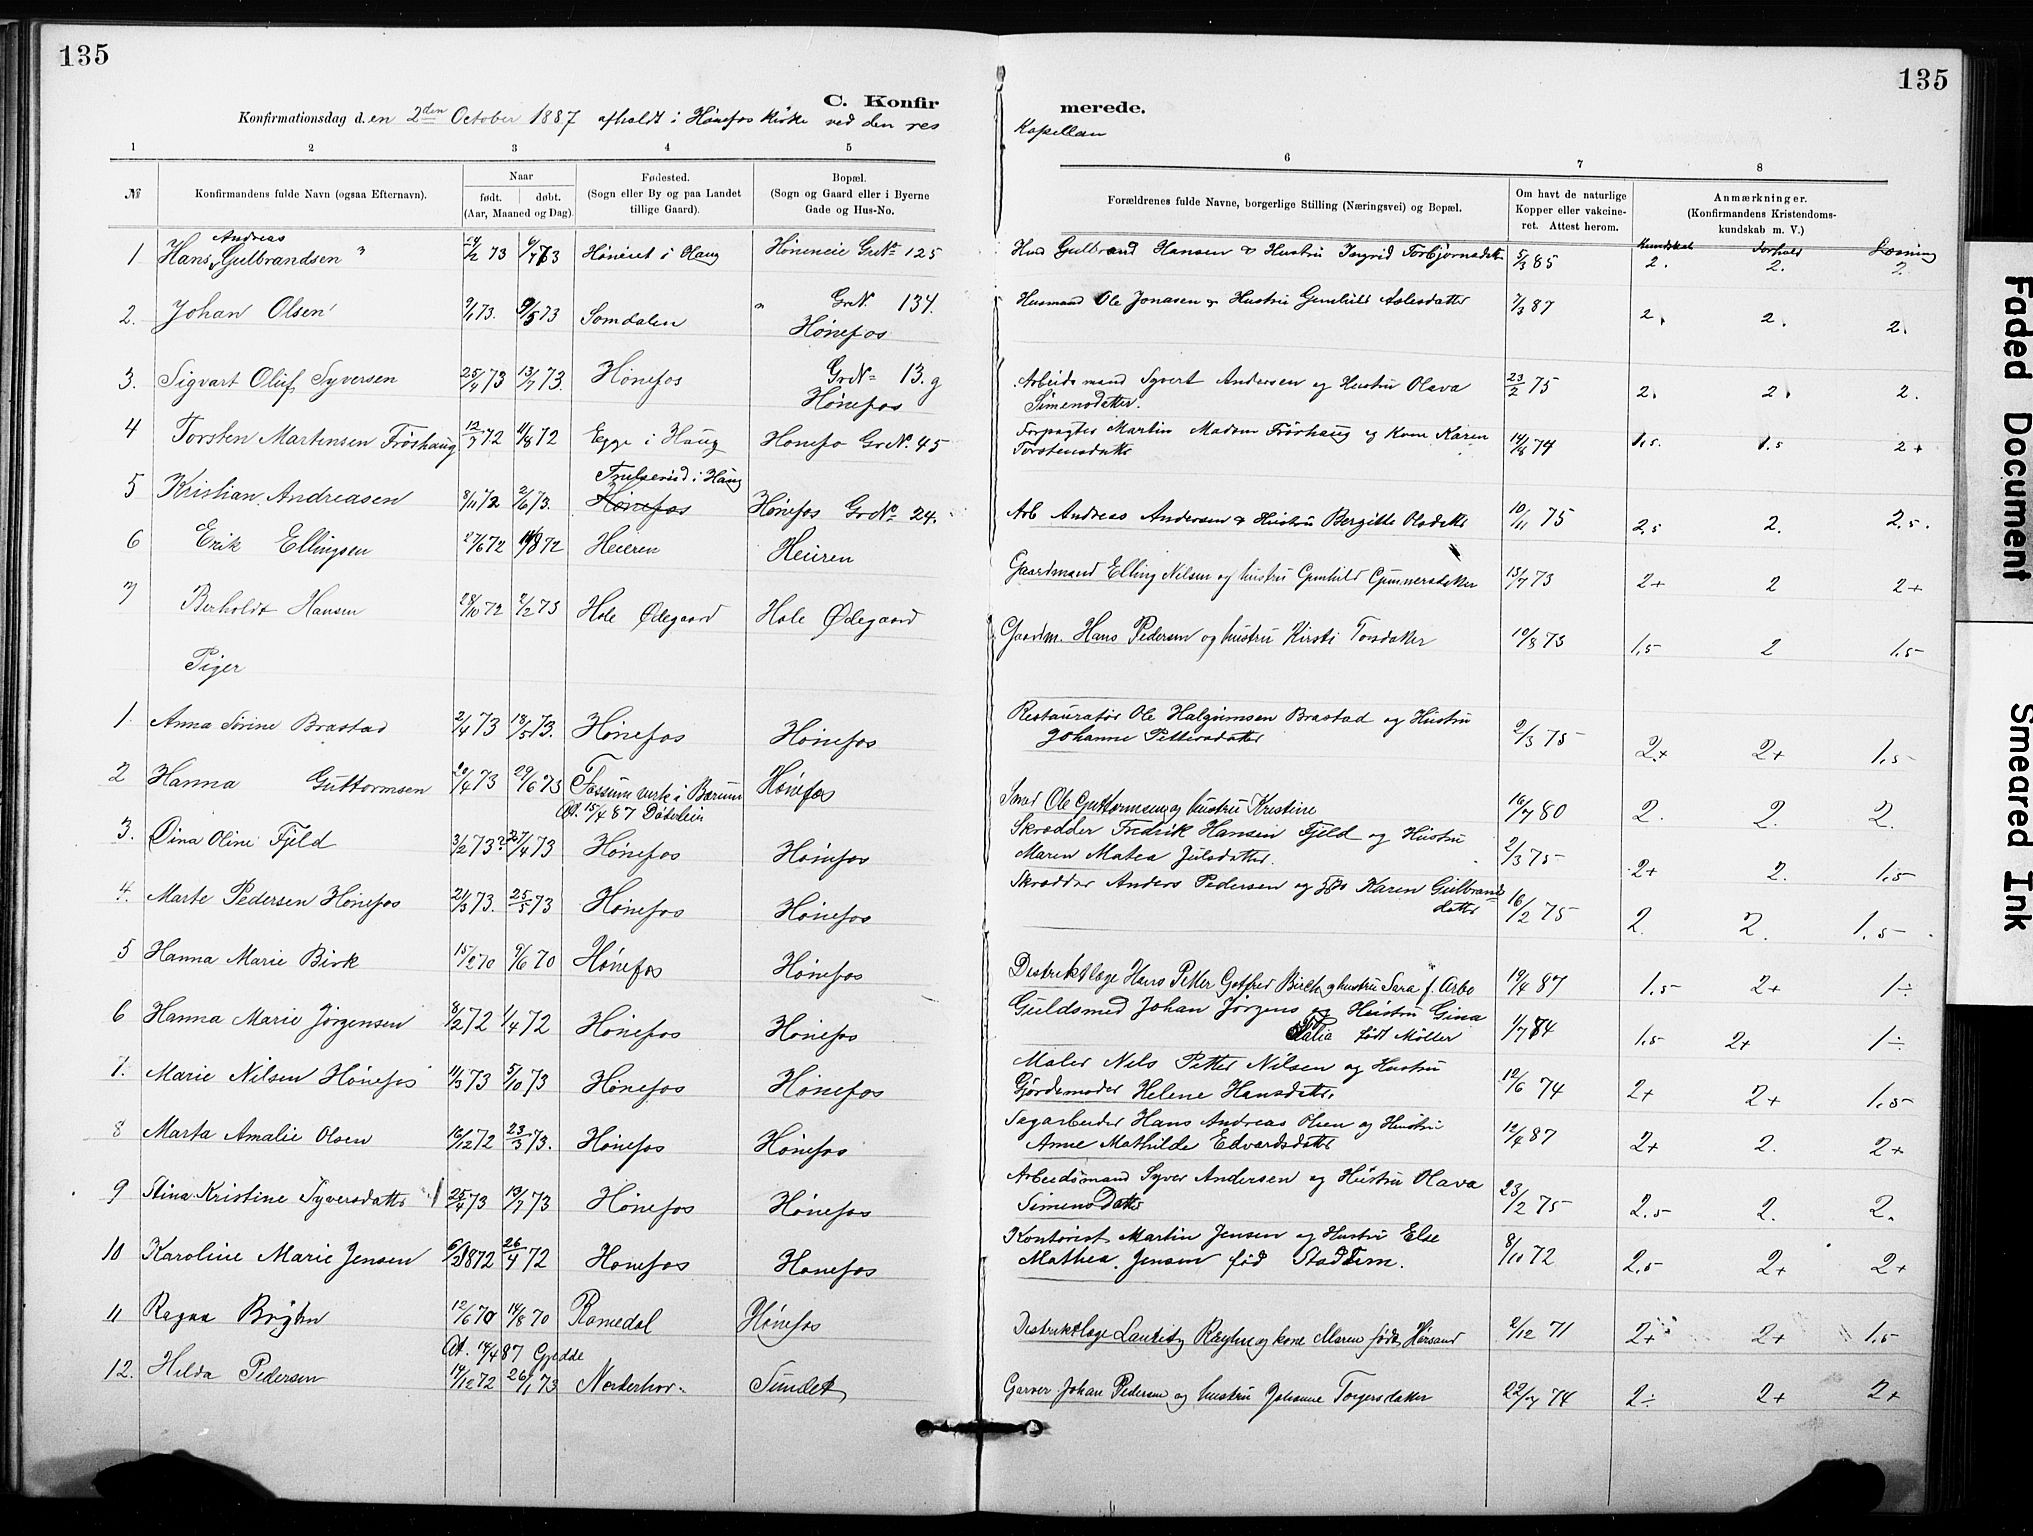 135
135
C. Konfirmerede.
Konfirmationsdag d.en 2den October 1887 afholdt i Hønefos Kirke ved den res Kapellan
1 2 3 4 5 6 7 8
№ Konfirmandens fulde Navn (ogsaa Efternavn). Naar født. døbt. (Aar, Maaned og Dag). Fødested. (Sogn eller By og paa Landet tillige Gaard). Bopæl. (Sogn og Gaard eller i Byerne Gade og Hus-No. Forældrenes fulde Navne, borgerlige Stilling (Næringsvei) og Bopæl. Om havt de naturlige Kopper eller vakcineret. Attest herom. Anmærkninger. (Konfirmandens Kristendomskundskab m. V.)
Kundskab Forhold Læsning
1 Hans Andreas Gulbrandsen " 73 Høneneie Gr№ 125 Husm Gulbrand Hansen & Hustru Ingrid Torbjørnsdatt 5/3 85 2. 2. 2.
2. Johan Olsen 73. 73 Somdalen " Gr№ 134. Hønefos Husmand Ole Jonasen & Hustru Gunhild Aslesdatter 7/3 87 2. 2. 2.
3. Sigvart Oluf Syversen 25/4 73 13/7 73. Hønefos Gr№ 13.g Hønefos Arbeidsmand Syvert Andersen og Hustru Olava Simensdatter. 23/2 75 2. 2. 2.
4 Torsten Martinsen Frøshaug 72 11/8 72 Egge i Haug Hønefo Gr№ 45 Forpagter Martin Madsen Frøshaug og Kone Karen Torstensdatter 14/8 74 1.5. 1.5 2+
5 Kristian Andreasen 8/11 72 2/6 73. Trulserud i Haug Hønefos Hønefos Gr№ 24. Arb Andreas Andersen & Hustru Bergitte Olsdatt 10/11 75 2.5 2. 2.5.
6 Erik Ellingsen 27/6 72 72 Heieren Heieren Gaardmand Elling Nilsen og hustru Gunhild Gunnersdatter 15/7 73 2+ 2 2+
7 Berholdt Hansen 28/10 72 2/2 73 Hole Ødegaard Hole Ødegaard Gaardm. Hans Pedersen og hustru Kirsti Torsdatter 10/8 73 1.5 2 1.5
Piger
1. Anna Sørine Brastad 2/4 73 18/5 73. Hønefos Hønefos Restauratør Ole Halgrimsen Brastad og Hustru Johanne Pettersdatter 2/3 75 2+ 2+ 1.5
2 Hanna Guttormsen 20/4 73 29/6 73 Fossum verk i Bærum Hønefos Smed Ole Guttormsen og hustru Kristine 16/7 80 2. 2. 2.
At. 15/4 87 Døderlein
3. Dina Oline Fjeld 3/2 73? 27/4 73 Hønefos Hønefos Skrædder Fredrik Hansen Fjeld og Hustru Maren Matea Julsdatter. 2/3 75 2+ 2. 1.5
4. Marte Pedersen Hønefos 21/3 73. 25/5 73 Hønefos Hønefos Skrædder Anders Pedersen og Karen Gulbrandsdatter 16/2 75 2. 2. 1.5
5 Hanna Marie Birk 15/2 70 9/6 70 Hønefos Hønefos Distriktlæge Hans Petter Gotfred Birch og hustru Sara f. Arbo 19/4 87 1.5 2+ 1÷
6 Hanna Marie Jørgensen 8/2 72 1/4 72 Hønefos Hønefos Guldsmed Johan Jørgens og Hustru Gina Talia født Møller 1/7 84 1.5 2+ 1÷
7. Marie Nilsen Hønefos 11/3 73 5/10 73 Hønefos Hønefos Maler Nils Petter Nilsen og Hustru Gjordemoder Helene Hansdatter. 12/6 74 2+ 2+ 1.5
8 Marta Amalie Olsen 16/12 72 23/3 73. Hønefos Hønefos Sagarbeider Hans Andreas Olsen og Hustru Anne Mathilde Edvardsdatter 12/4 87 2+ 2. 2+
9 Stina Kristine Syversdatter 25/4 73 13/7 73 Hønefos Hønefos Arbeidsmand Syver Andersen og Hustru Olava Simensdatter 23/2 75 2.5 2. 2.
10 Karoline Marie Jensen 6/2 1872 26/4 72 Hønefos Hønefos Kontorist Martin Jensen og Hustru Else Mathea. Jensen fød Stadsem. 8/11 72 2.5 2+ 2+
11 Ragna 12/6 70 14/8 70 Romedal Hønefos Distriktlæge og kone Maren født 2/12 71 2+ 2+ 1.5
At. 14/4 87 Gjedde
12. Hilda Pedersen 14/12 72 26/1 73 Norderhov Sundet Garver Johan Pedersen og hustru Johanne Torgersdatter 22/7 74 2÷ 2+ 2+
Faded Document
Smeared Ink